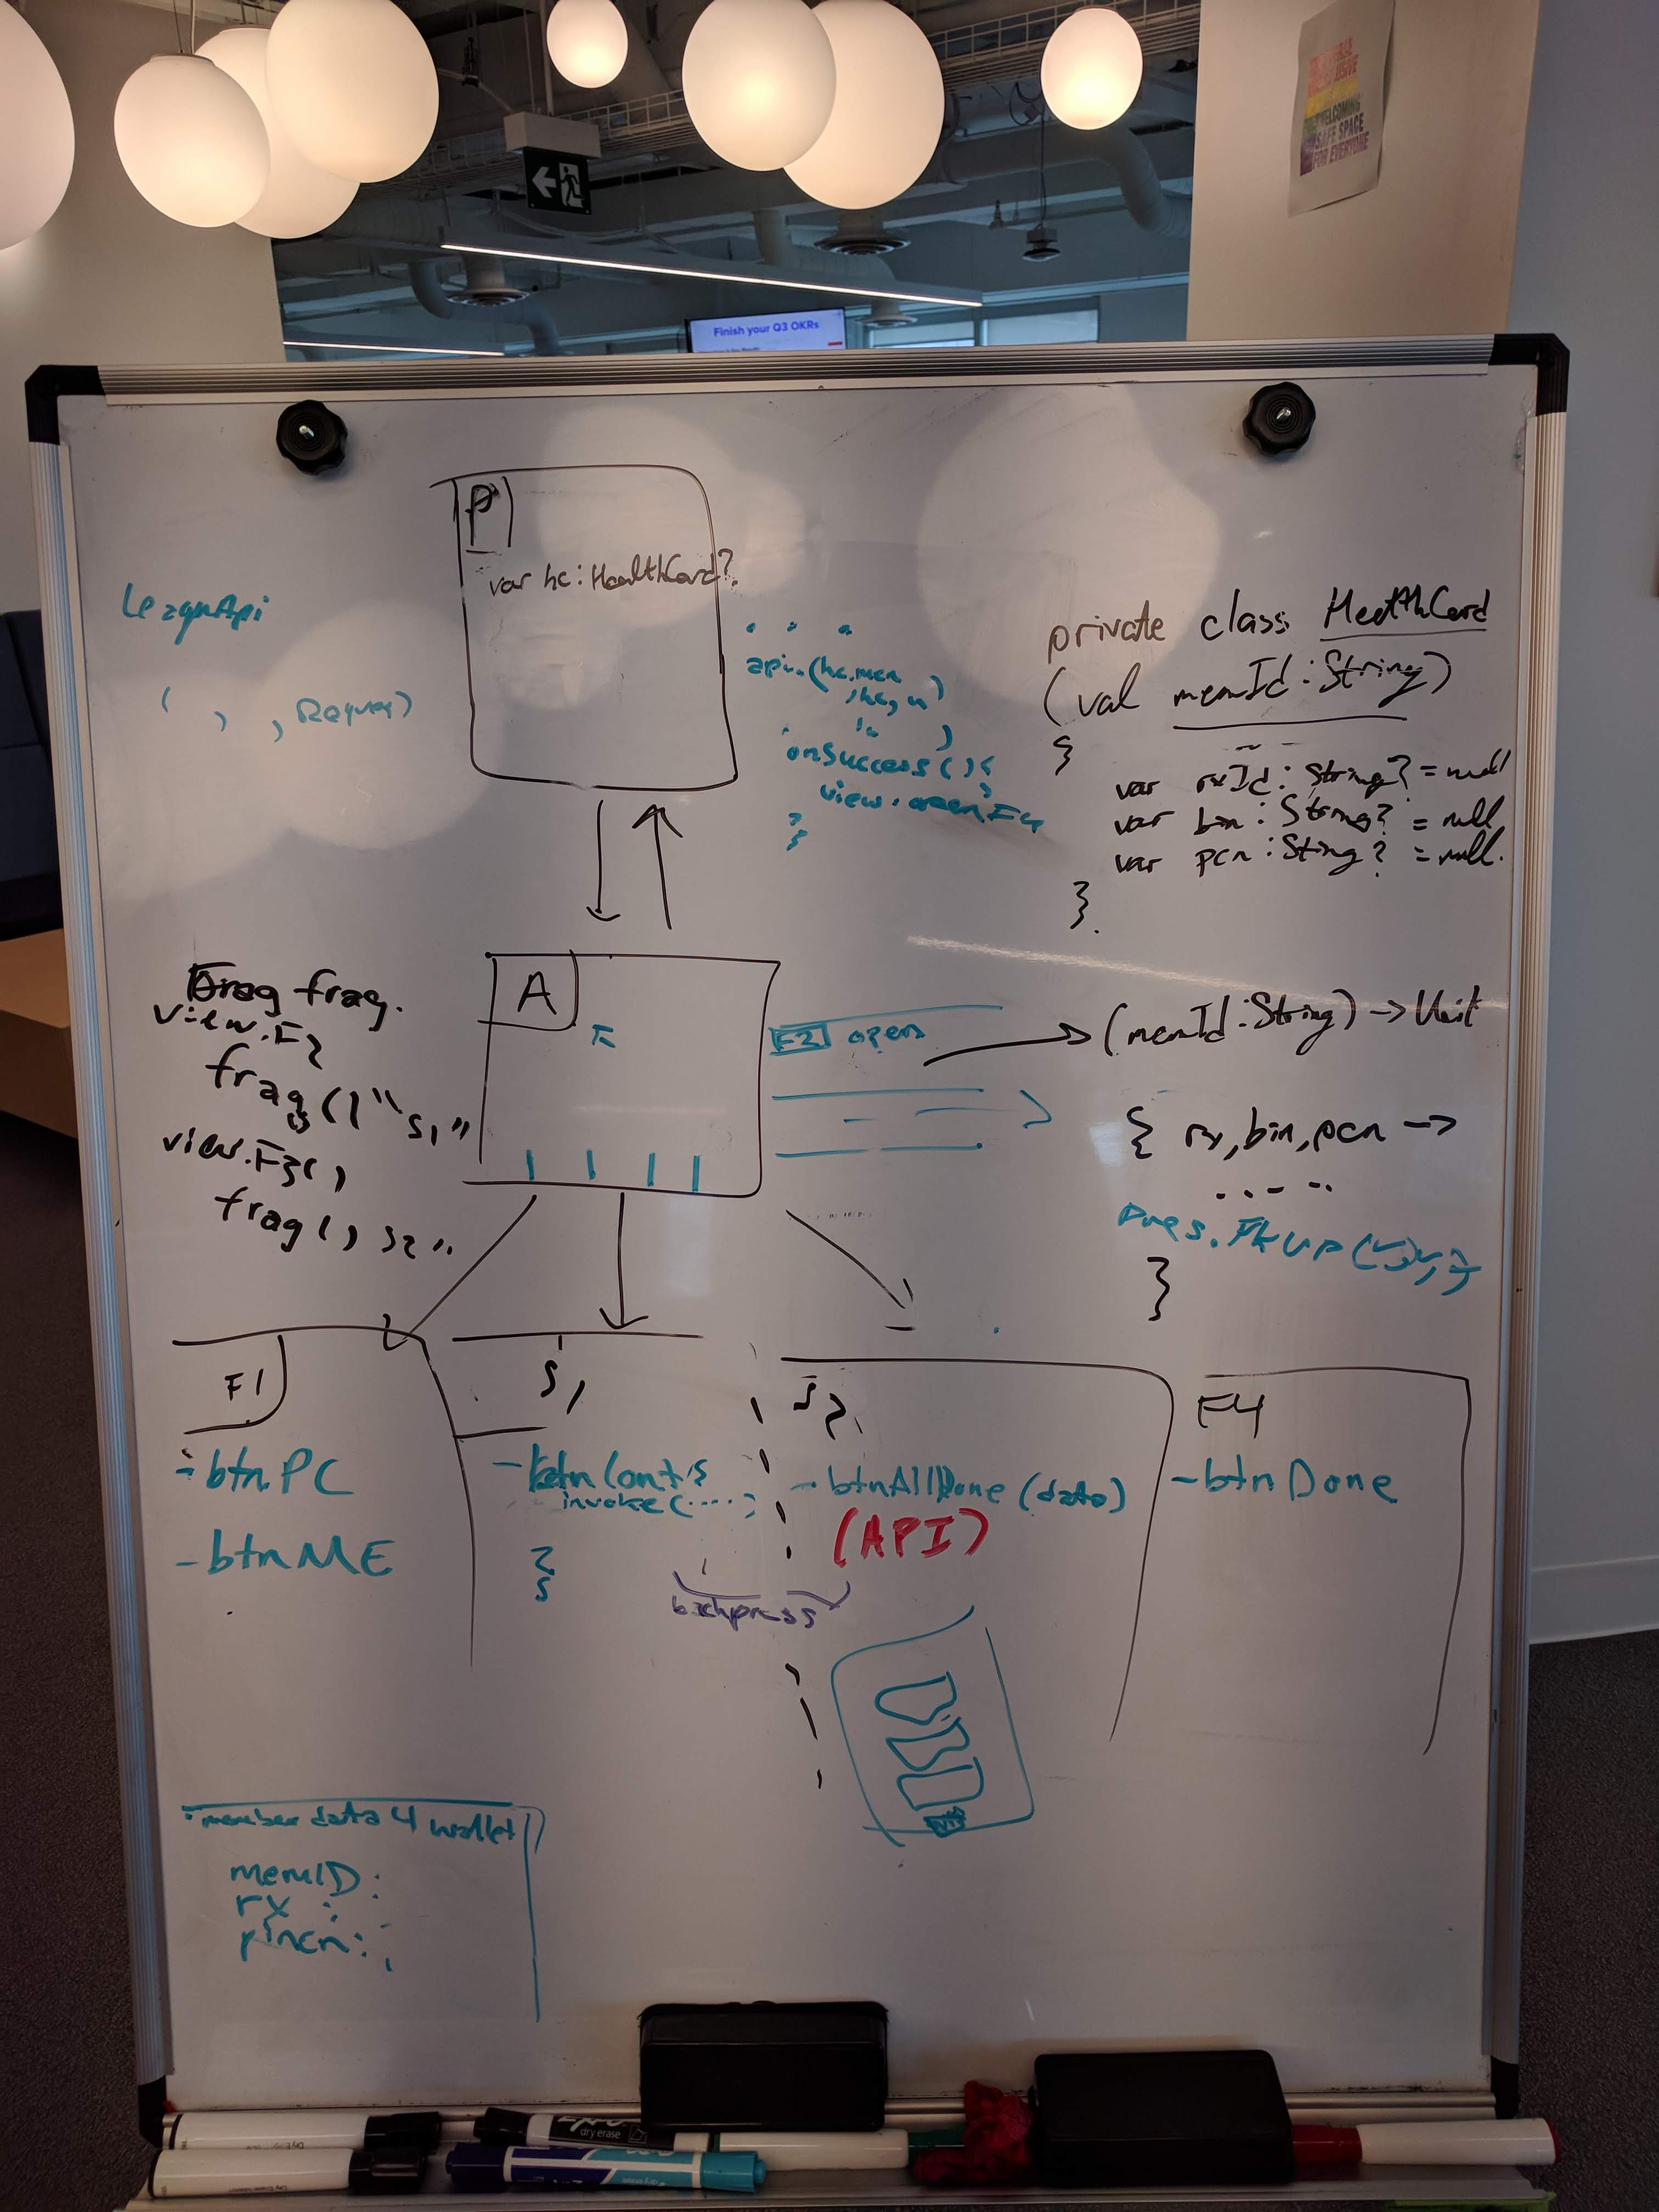 WELCOMING
SAFE SPACE
FOR EVERYONE
Finish your Q3 OKRs
P
var hc: HealthCard?
( , ,
api.(hc.mem
onSuccess() {
view.openF4
}
private class HealthCard
(val memId: String)
{
var rxId: String? = null
var bin: String? = null
var pcn: String? = null.
}.
frag.
view.F2
frag(
view.F3()
frag() S2"
A
F2 open
(memId: String) -> Unit
{ rx, bin, pcn ->
.....
}
F1
- btnPC
- btnME
S1
- btnCont {
invoke(....)
}
backpress
S2
- btnAllDone (data)
(API)
F4
- btnDone
member data 4 wallet
memID:
rx :
dry erase